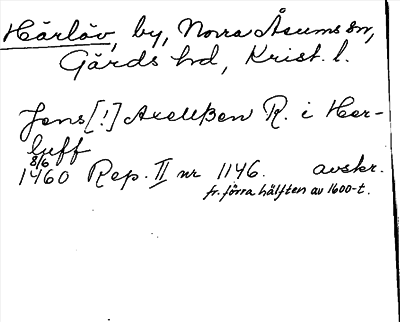 Härlöv, by, Norra Åsums sn,
Gärds hd, Krist. l.
Jens [!] Axelßen R. i Her-
luff
8/6
1460 Rep. II nr 1146. avskr.
fr. förra hälften av 1600-t.